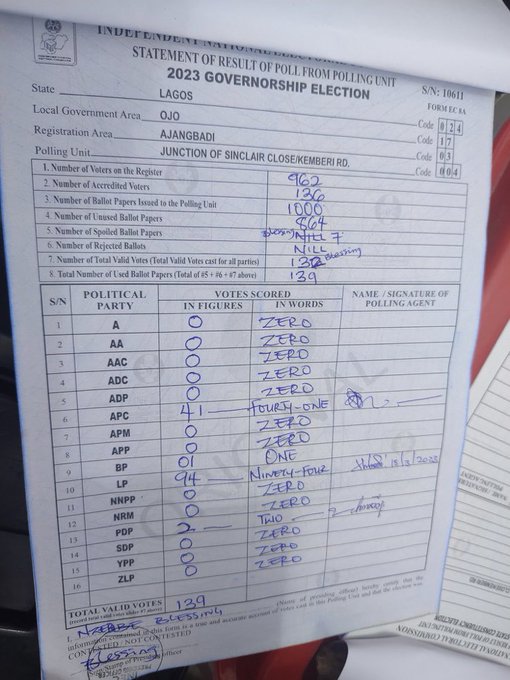 INDEPENDENT NATIONAL
STATEMENT OF RESULT OF POLL FROM POLLING UNIT
2023 GOVERNORSHIP ELECTION
S/N: 10611
FORM EC 8A
State LAGOS Code 0 2 4
Local Government Area OJO Code 1 7
Registration Area AJANGBADI Code 0 3
Polling Unit JUNCTION OF SINCLAIR CLOSE/KEMBERI RD. Code 0 0 4
1. Number of Voters on the Register 962
2. Number of Accredited Voters 136
3. Number of Ballot Papers Issued to the Polling Unit 1000
4. Number of Unused Ballot Papers 864
5. Number of Spoiled Ballot Papers Blessing NILL 7
6. Number of Rejected Ballots NILL
7. Number of Total Valid Votes (Total Valid Votes cast for all parties) Blessing
8. Total Number of Used Ballot Papers (Total of #5 + #6 + #7 above) 139
S/N POLITICAL PARTY VOTES SCORED IN FIGURES IN WORDS NAME / SIGNATURE OF POLLING AGENT
1 A 0 ZERO
2 AA 0 ZERO
3 AAC 0 ZERO
4 ADC 0 ZERO
5 ADP 0 ZERO
6 APC 41 FOURTY-ONE
7 APM 0 ZERO
8 APP 0 ZERO
9 BP 01 ONE
10 LP 94 NINETY-FOUR
11 NNPP 0 ZERO
12 NRM 0 ZERO
13 PDP 2 TWO
14 SDP 0 ZERO
15 YPP 0 ZERO
16 ZLP 0 ZERO
TOTAL VALID VOTES 139
I, BLESSING (Name of presiding officer) hereby certify that the
information contained in this form is a true and accurate account of votes cast in this Polling Unit and that the election was
CONTESTED / NOT CONTESTED
Blessing